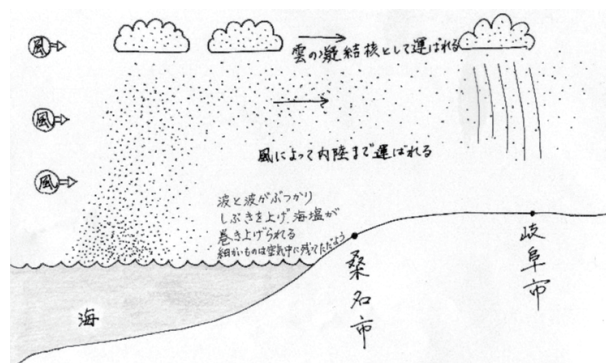 風
雲の凝結核として運ばれる
風
風によって内陸まで運ばれる
風
波と波がぶつかり
しぶきを上げ海塩が
巻き上げられる
細かいものは空気中に残てただよう
海
桑名市
岐阜市